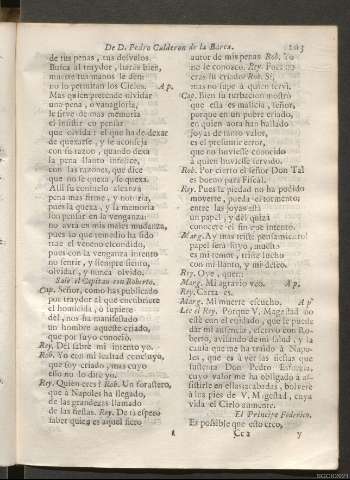 De D. Pedro Calderon de la Barca. 203
de tus penas, tus desvelos.
Busca al traydor, haràs bien,
muerte tus manos le den:
no lo permitan los Cielos. Ap.
Mas quien pretende olvidar
una pena, o vanagloria,
le sirve de mas memoria
el insistir en pensar
que olvida: el que ha de dexar
de quexarse, y se aconseja
con su razon, quando dexa
la pena llanto infelice,
con las razones, que dice
que no se quexa, se quexa.
Assi su consuelo alcanza
pena mas firme, y notoria,
pues la quexa, y la memoria
son pensar en la venganza:
no avrà en mis males mudanza,
pues lo que remedio ha sido
trae el veneno escondido,
pues con la venganza intento
no sentir, y siempre siento,
olvidar, y nunca olvido.
Sale el Capitan con Roberto.
Cap. Señor, como has publicado
por traydor al que encubriere
el homicida, ò supiere
dèl, nos ha manifestado
un hombre aqueste criado,
que por suyo conociò.
Rey. Del sabrè mi intento yo.
Rob. Yo en mi lealtad concluyo,
que soy criado, mas cuyo
esso no lo dirè yo.
Rey. Quien eres? Rob. Un forastero,
que à Napoles ha llegado,
de las grandezas llamado
de las fiestas. Rey. De tì espero
saber quien es aquel fiero
autor de mis penas Rob. Yo
no le conozco. Rey. Pues no
eras su criado? Rob. Sì,
mas no supe à quien servì.
Cap. Bien su turbacion mostrò
que esta es malicia, señor,
porque en un pobre criado,
en quien aora han hallado
joyas de tanto valor,
es el presumir error,
que no huviesse conocido
à quien huviesse servido.
Rob. Por cierto el señor Don Tal
es bueno para Fiscal.
Rey. Pues la piedad no ha podido
moverte, pueda el tormento:
entre las joyas està
un papel, y dèl quizà
conocerè el fin que intentò.
Marg. Ay mas triste pensamiento!
papel serà suyo, muestra
es mi temor, triste lucho
con mi llanto, y mi delito.
Rey. Oye, quien:
Marg. Mi agravio veo. Ap.
Rey. Carta es.
Marg. Mi muerte escucho. Ap
Lee el Rey. Porque V. Magestad no
està en el engaño, que le puede
dar mi ausencia, escrivo con Ro-
berto, avisando de mi salud, y la
causa que me ha traido à Napo-
les, que es à vèr las fiestas que
sustenta Don Pedro Esforcia,
cuyo valor me ha obligado à as-
sistirle en ellas: acabadas, bolverè
à los pies de V. Magestad, cuya
vida el Cielo aumente.
El Principe Federico.
Es possible que esto creo,
Cc2 y
SGCI0921